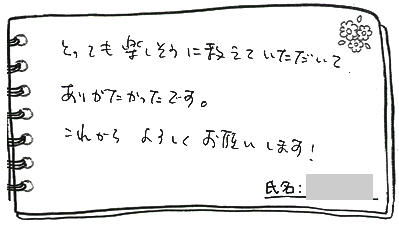 とっても楽しそうに教えていただいて
ありがたかったです。
これから よろしくお願いします!
氏名: